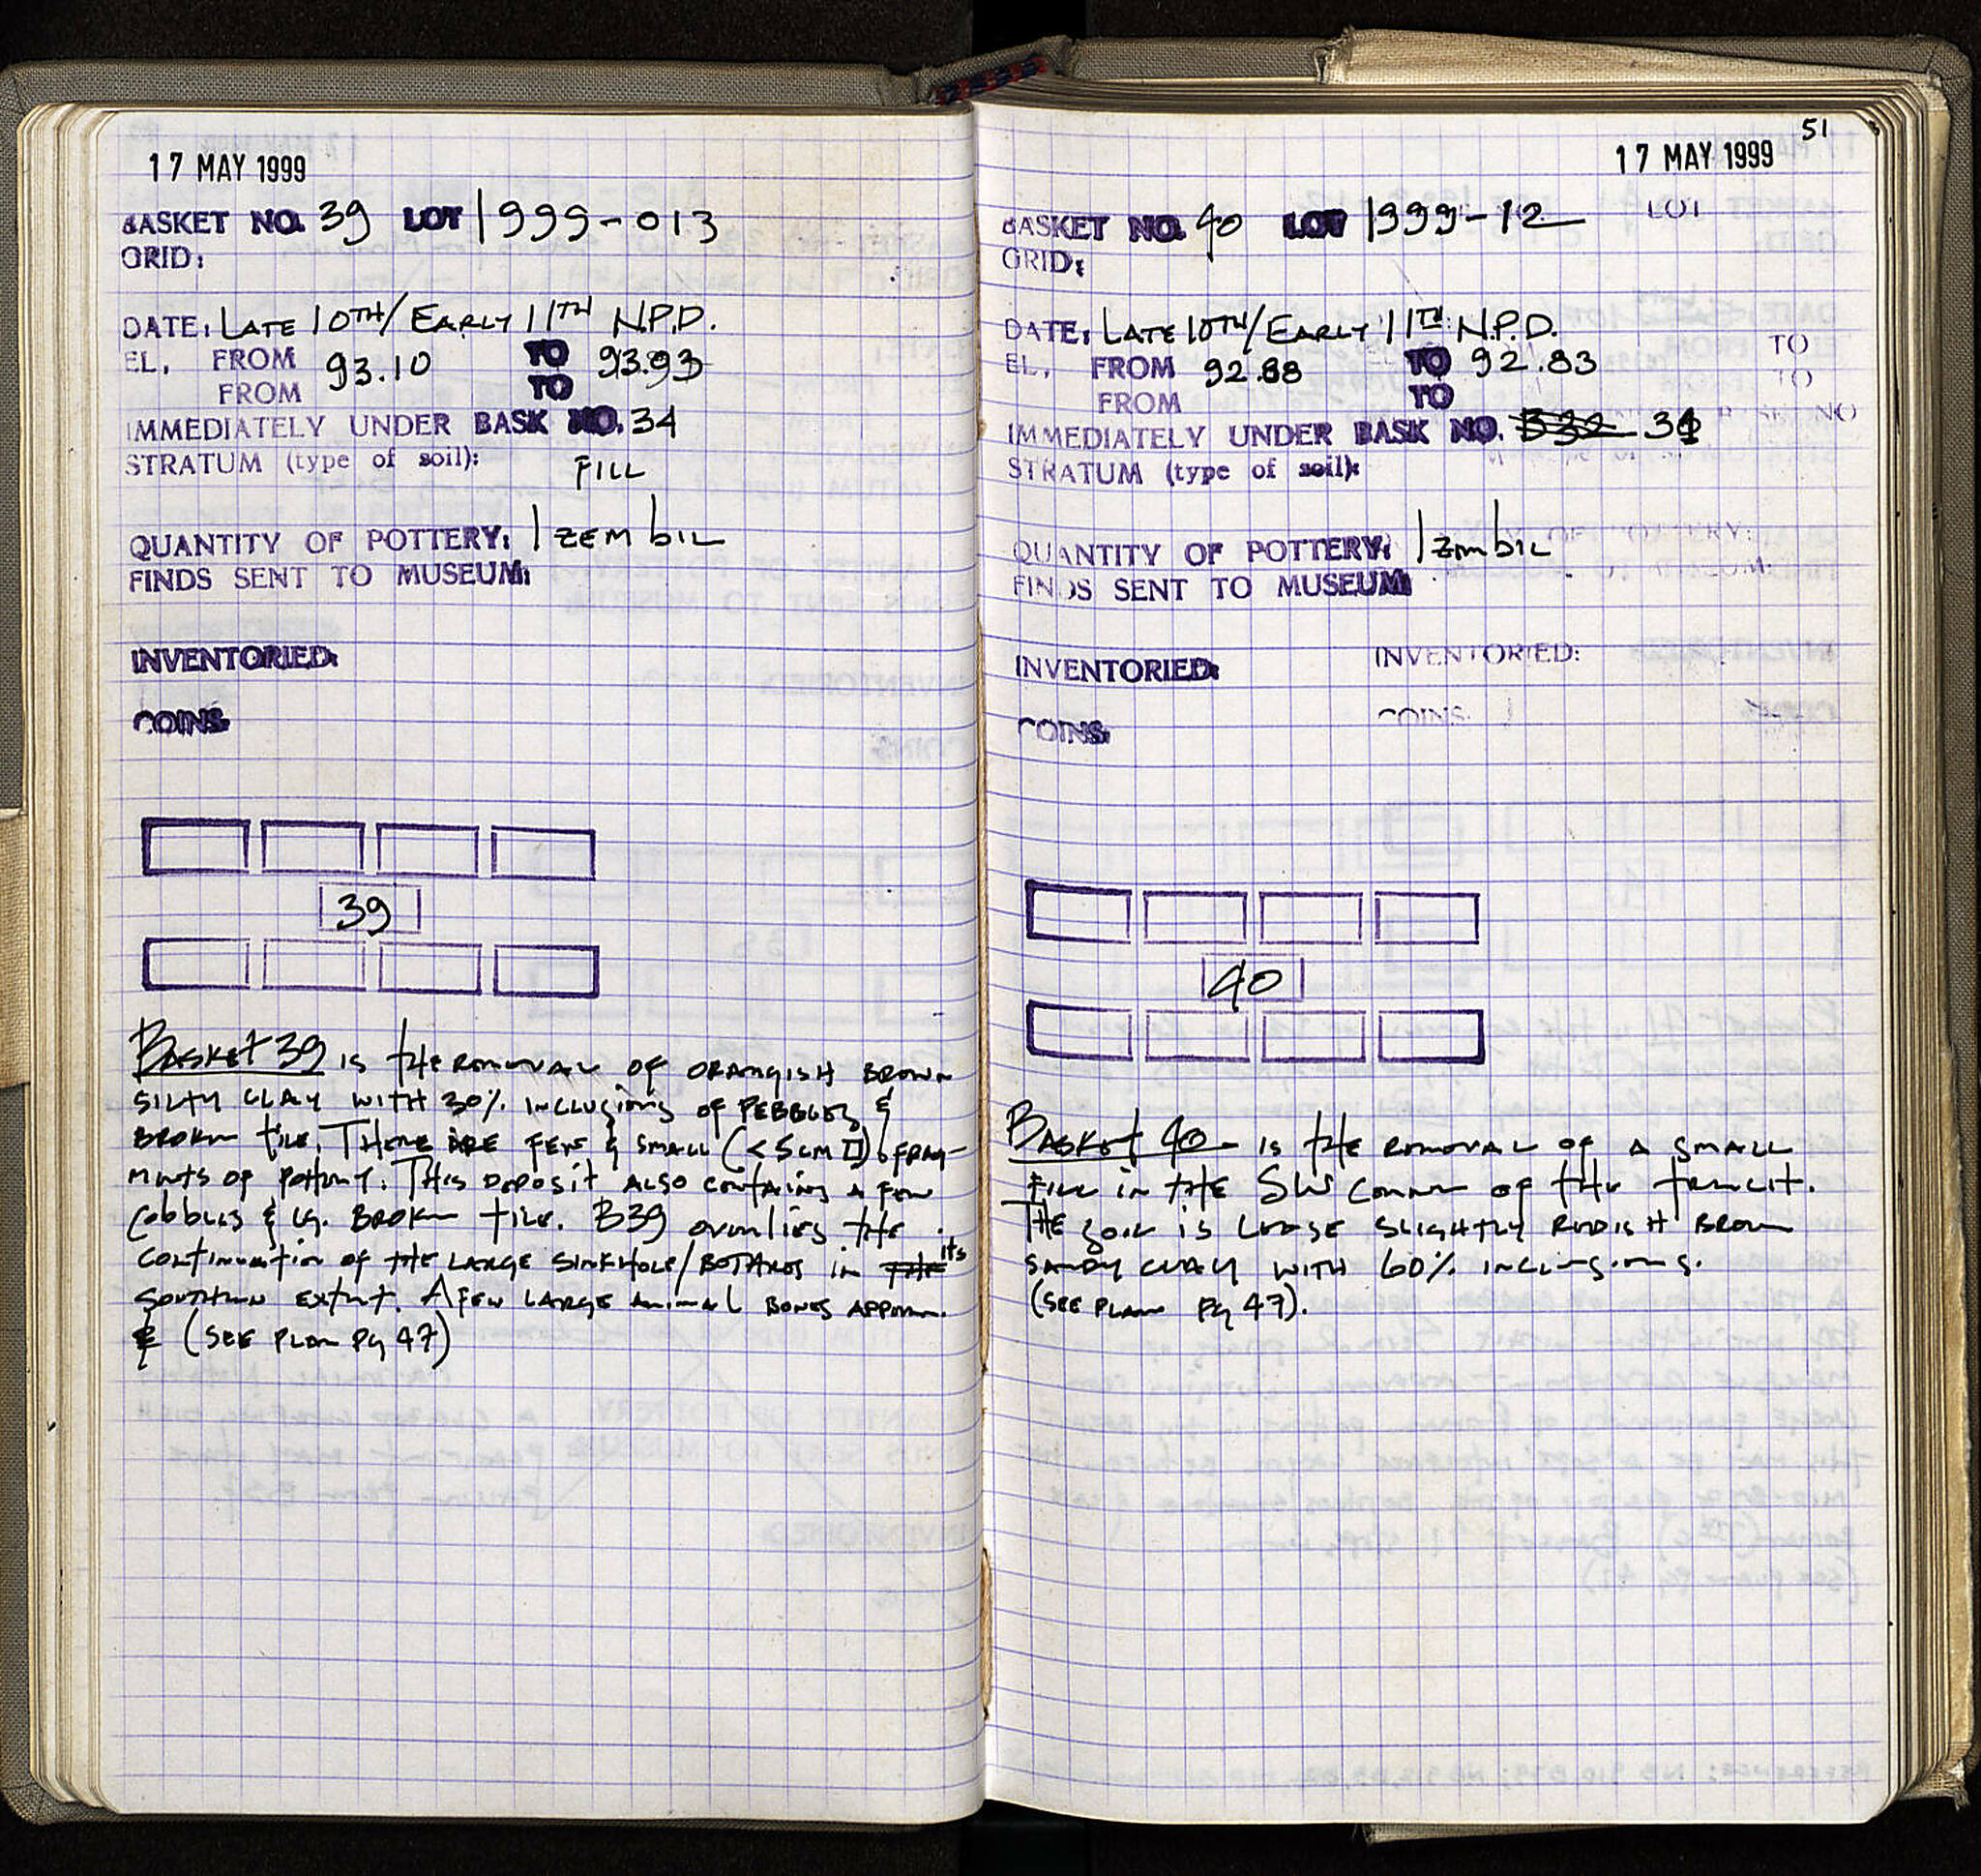 17 MAY 1999
BASKET NO. 39 LOT 1999-013
GRID:
DATE: LATE 10TH/EARLY 11TH N.P.D.
EL. FROM 93.10 TO 93.93
FROM TO
IMMEDIATELY UNDER BASK NO. 34
STRATUM (type of soil):
FILL
QUANTITY OF POTTERY: 1 ZEMBIL
FINDS SENT TO MUSEUM:
INVENTORIED:
COINS:
39
BASKET 39 is the removal of ORANGISH BROWN
SILTY CLAY WITH 30% INCLUSIONS OF PEBBLES &
BROKEN TILE. THERE ARE FEW & SMALL (<5cm □) FRAG-
MENTS OF POTTERY. THIS DEPOSIT ALSO CONTAINS A FEW
COBBLES & LG. BROKEN TILE. B39 overlies the
CONTINUATION OF THE LARGE SINKHOLE/BOTHROS in THE its
SOUTHERN EXTENT. A FEW LARGE ANIMAL BONES APPEAR.
& (SEE PLAN Pg 47)
51
17 MAY 1999
BASKET NO. 40 LOT 1999-12 LOT
GRID:
DATE: LATE 10TH/EARLY 11TH N.P.D.
EL. FROM 92.88 TO 92.83 TO
FROM TO TO
IMMEDIATELY UNDER BASK NO. B32 34 NO
STRATUM (type of soil):
QUANTITY OF POTTERY: 1 zembil
FINDS SENT TO MUSEUM:
INVENTORIED: INVENTORIED:
COINS: COINS:
40
BASKET 40 - is the REMOVAL OF A SMALL
FILL IN THE SW CORNER OF THE TRENCH.
THE SOIL IS LOOSE SLIGHTLY REDISH BROWN
SANDY CLAY WITH 60% INCLUSIONS.
(SEE PLAN Pg 47).